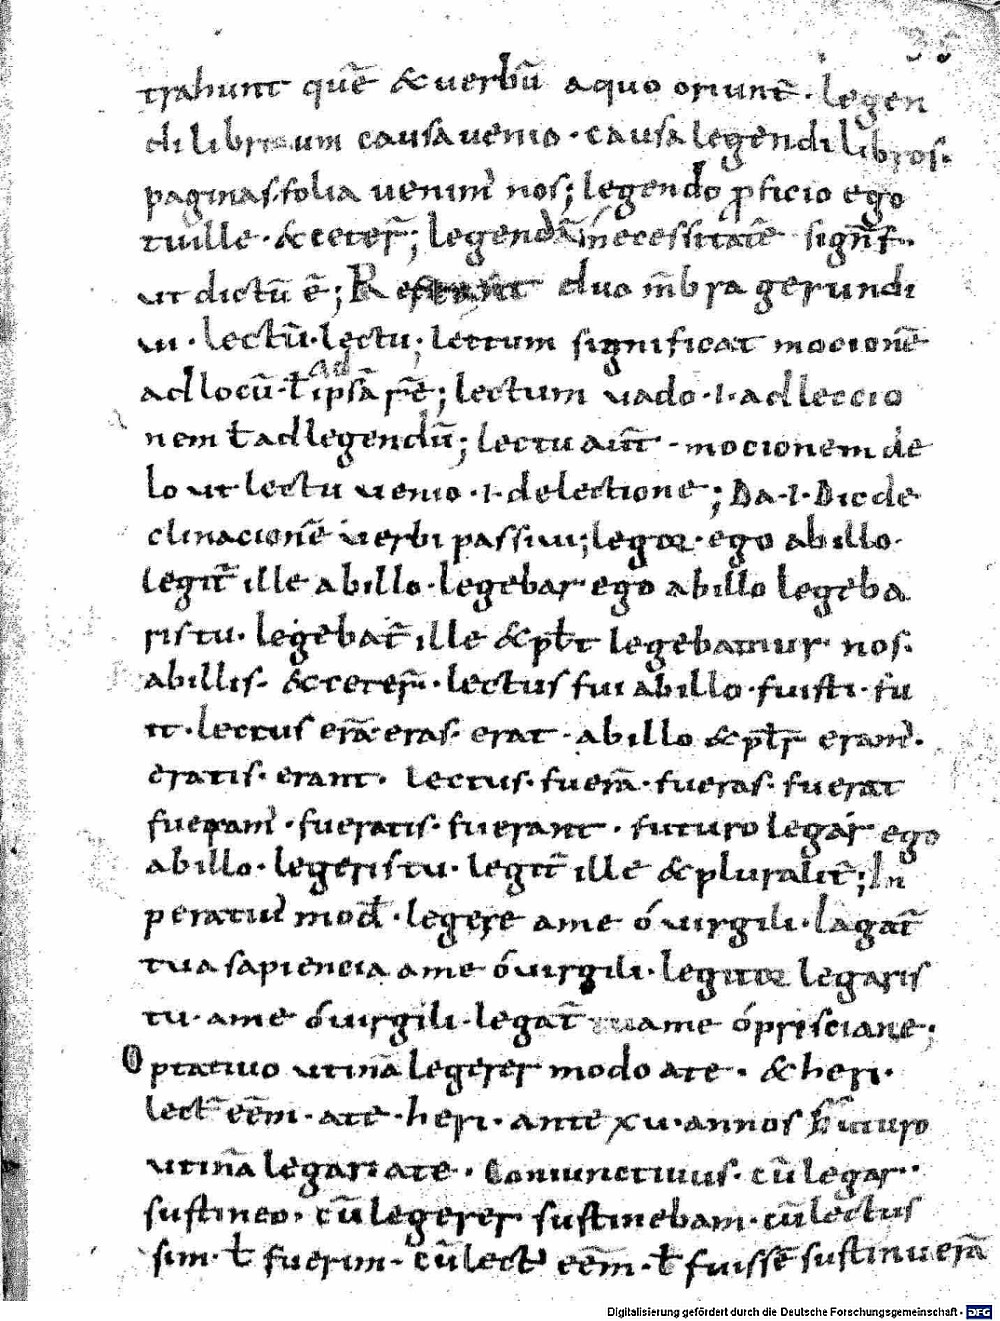 trahunt quē & uerbū aquo oriunt̄ . legen
di libr um causa uenio . causa legendi libros .
paginas . folia uenim᷒ nos ; legendo ꝓficio ego
tu ille . & ceter̄ ; legendā necessitatē signif̄ .
ut dictū ē ; duo m̄bra gerundi
ui . lectū . lectu ; lectum significat mocionē
ad locū . ł ad ipsā rē ; lectum uado .i. ad leccio
nem ł ad legendū ; lectu aūt . mocionem de
lo ut lectu uenio .i. de lectione ; Da .i. Dic de
clinacionē uerbi passiui ; legor . ego ab illo .
legit̄ ille ab illo . legebar ego ab illo legeba
ris tu . legebat̄ ille & pl̄t legebamur nos .
ab illis . & ceter̄ . lectus fui ab illo . fuisti . fu
it . lectus erā . eras . erat . ab illo & pl̄r eram᷒ .
eratis . erant . lectus . fuerā . fueras . fuerat
fueram᷒ . fueratis . fuerant . futuro legar ego
ab illo . legeris tu . legit̄ ille & pluralit̄ ; In
peratiui mod . legere a me ó uirgili . lagat̄
tua sapiencia a me ó uirgili . legitor legaris
tu . a me ó uirgili . legat̄ a me ó prisciane ;
Optatiuo utinā legerer modo a te . & heri .
lect᷒ eēm . a te . heri . ante xu . annos futuro
utinā legar a te . Coniunctiuus . cū legar .
sustineo . cū legerer sustinebam . cū lectus
sim . ł fuerim . cū lect᷒ eēm . ł fuissē sustinuerā
Digitalisierung gefördert durch die Deutsche Forschungsgemeinschaft - DFG